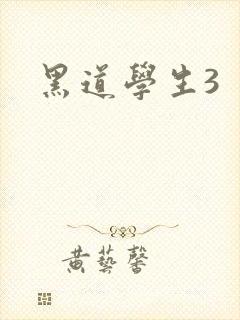 黑道學生3
黃藝馨